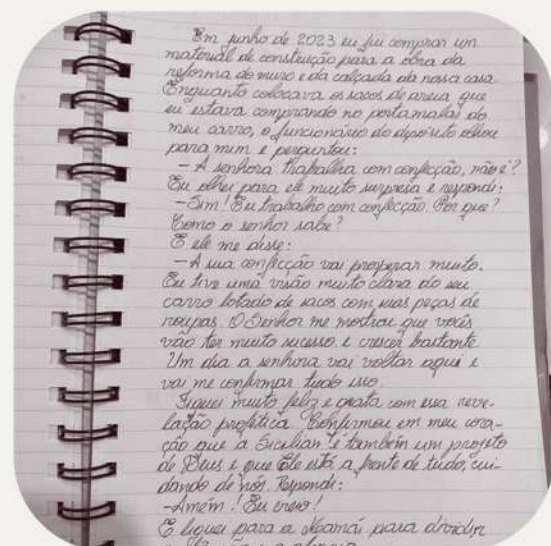 Em junho de 2023 eu fui comprar um
material de construção para a obra da
reforma do muro e da calçada da nossa casa
Enquanto colocava os sacos de areia que
eu estava comprando no portamalas do
meu carro, o funcionário do depósito olhou
para mim e perguntou:
- A senhora trabalha com confecção, não é?
Eu olhei para ele muito surpresa e respondi:
- Sim! Eu trabalho com confecção. Por que?
Como o senhor sabe?
E ele me disse:
- A sua confecção vai prosperar muito.
Eu tive uma visão muito clara do seu
carro lotado de sacos com suas peças de
roupas. O Senhor me mostrou que vocês
vão ter muito sucesso e crescer bastante.
Um dia a senhora vai voltar aqui e
vai me confirmar tudo isso.
Fiquei muito feliz e grata com essa reve-
lação profética. Confirmou em meu cora-
ção que a Sicilian's é também um projeto
de Deus e que Ele está a frente de tudo, cui-
dando de nós. Respondi:
- Amém! Eu creio!
E liguei para a Noamái para dividir